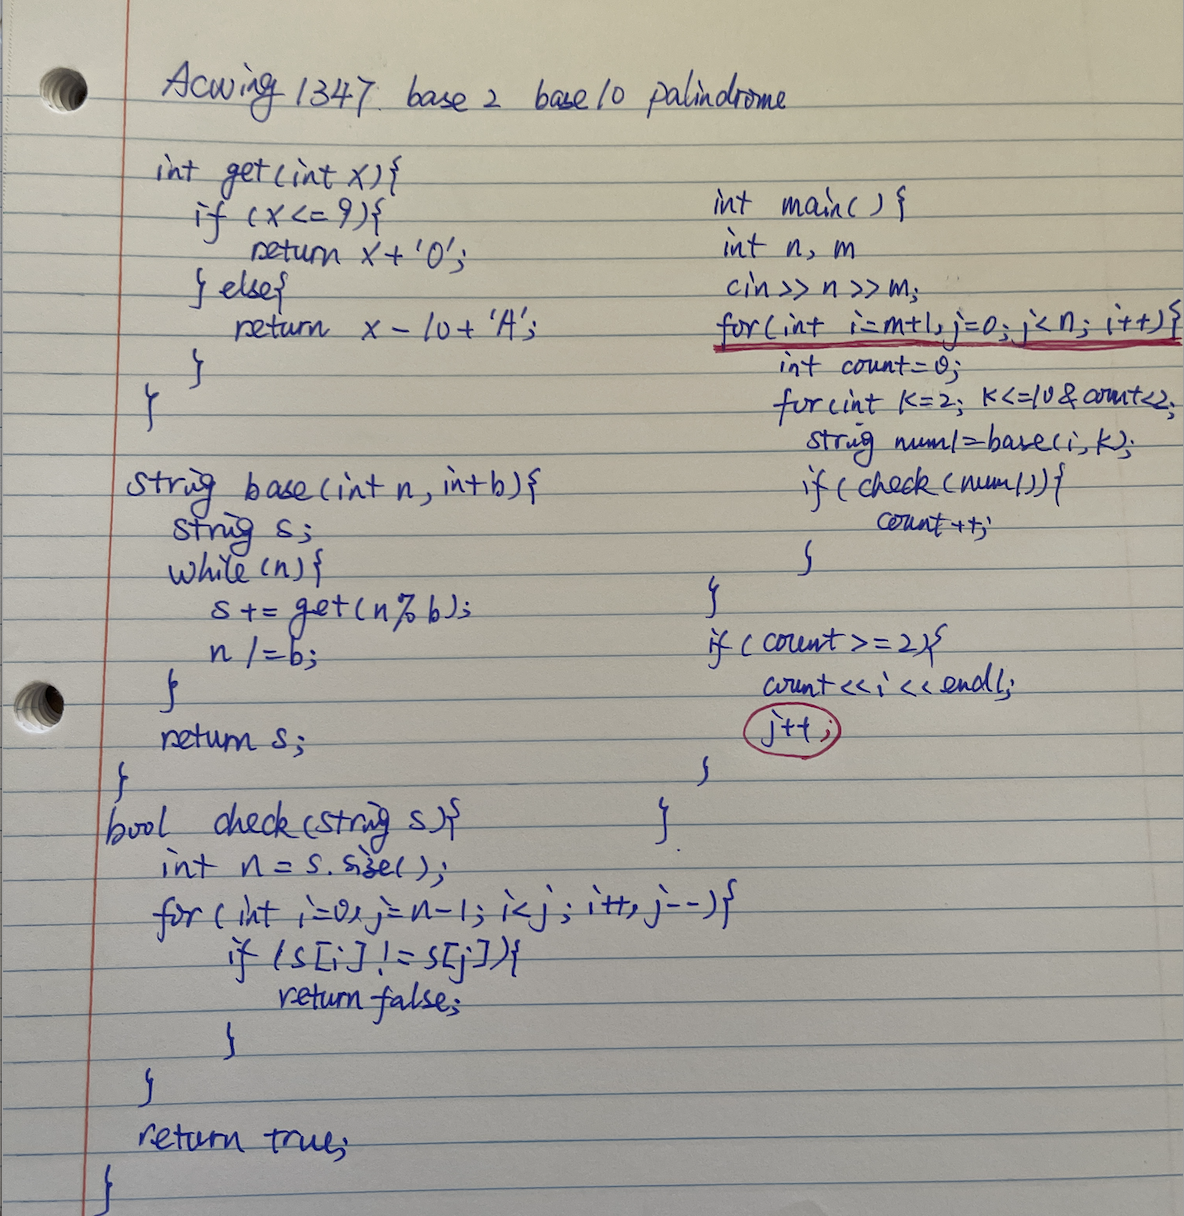 Acwing 1347. base 2 base 10 palindrome
int get(int x){
if (x<=9){
return x+'0';
} else{
return x-10+'A';
}
}
string base(int n, int b){
string s;
while(n){
s += get(n%b);
n /=b;
}
return s;
}
bool check(string s){
int n = s.size();
for(int i=0, j=n-1; i<j; i++, j--){
if (s[i]!=s[j]){
return false;
}
}
return true;
}
int main(){
int n, m
cin>>n>>m;
for(int i=m+1, j=0; j<n; i++){
int count=0;
for(int k=2; k<=10 & count<2;
string num1=base(i,k);
if(check(num1)){
count++;
}
}
if(count>=2){
count<<i<<endl;
j++;
}
}